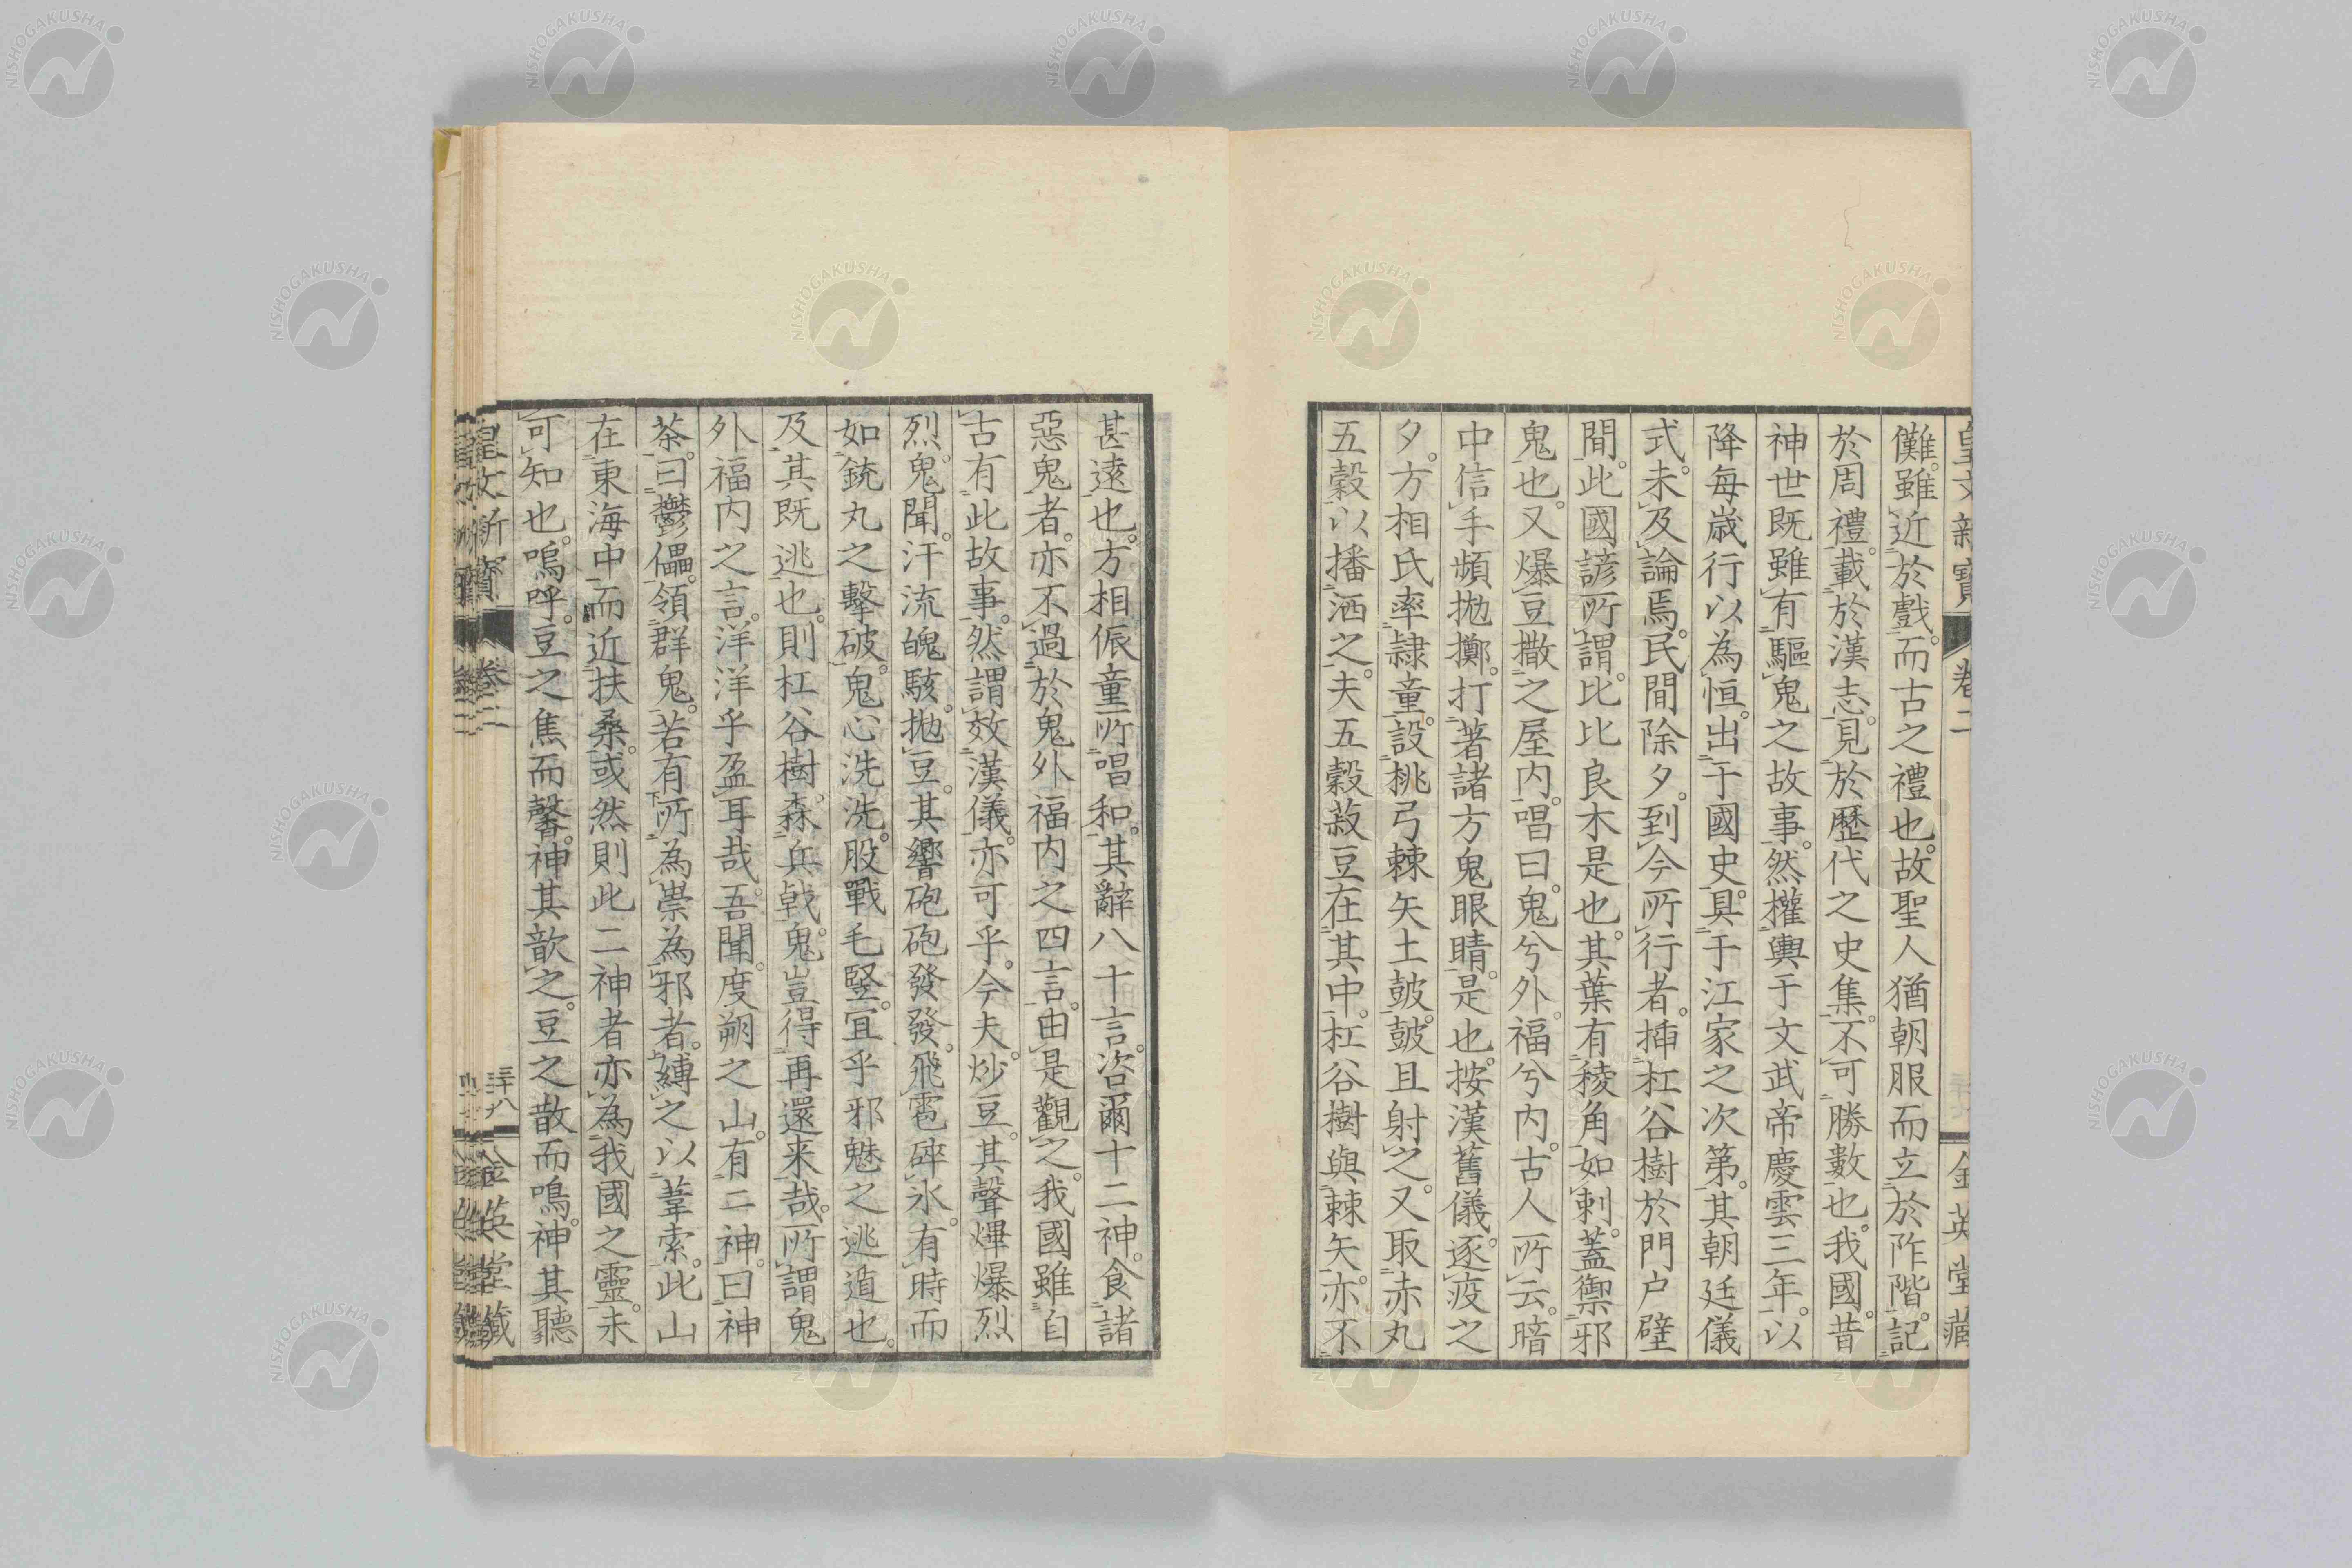 儺。雖近於戲。而古之禮也。故聖人猶朝服而立於阼階。記
於周禮。載於漢志。見於歴代之史集。不可勝數也。我國。昔
神世既雖有驅鬼之故事。然權輿于文武帝慶雲三年。以
降每歳行以為恒。出于國史。具于江家之次第。其朝廷儀
式。未及論焉。民間除夕。到今所行者。挿杠谷樹於門户壁
間。此國諺所謂。比比良木是也。其葉有稜角。如刺。蓋禦邪
鬼也。又爆豆撒之屋内。唱曰。鬼兮外。福兮内。古人所云。暗
中信手頻拋擲。打著諸方鬼眼睛。是也。按漢舊儀。逐疫之
夕。方相氏率隷童。設桃弓棘矢土鼓。鼓且射之。又取赤丸
五穀。以播洒之。夫五穀菽豆在其中。杠谷樹與棘矢。亦不
甚遠也。方相侲童所唱和。其辭八十言。咨爾十二神。食諸
惡鬼者。亦不過於鬼外福内之四言。由是觀之。我國雖自
古有此故事。然謂效漢儀。亦可乎。今夫炒豆。其聲熚爆烈
烈。鬼聞。汗流魄駭。拋豆。其響砲砲發發。飛雹碎氷。有時而
如銃丸之擊破。鬼心洗洗。股戰毛竪。宜乎邪魅之逃遁也。
及其既逃也。則杠谷樹森。兵戟鬼。豈得再還来哉。所謂鬼
外福内之言。洋洋乎盈耳哉。吾聞。度朔之山。有二神。曰神
荼。曰鬱儡。領群鬼。若有所為祟為邪者。縛之以葦索。此山
在東海中。而近扶桑。或然則此二神者亦為我國之靈。未
可知也。嗚呼。豆之焦而馨。神其歆之。豆之散而鳴。神其聽
皇文新寶 卷二 三十八 金英堂藏